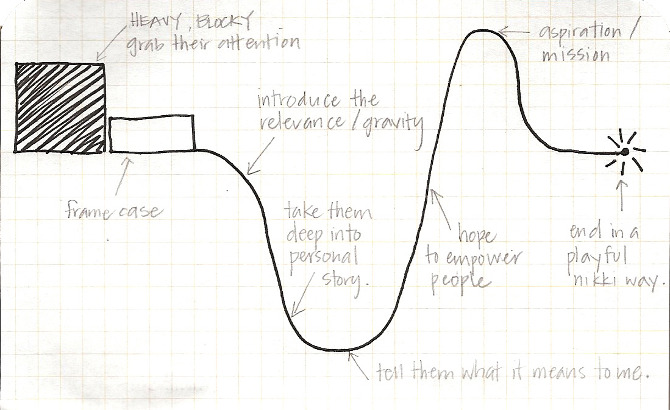 HEAVY, BLOCKY
grab their attention
frame case
introduce the
relevance / gravity
take them
deep into
personal
story.
tell them what it means to me.
hope
to empower
people
aspiration /
mission
end in a
playful
nikki way.